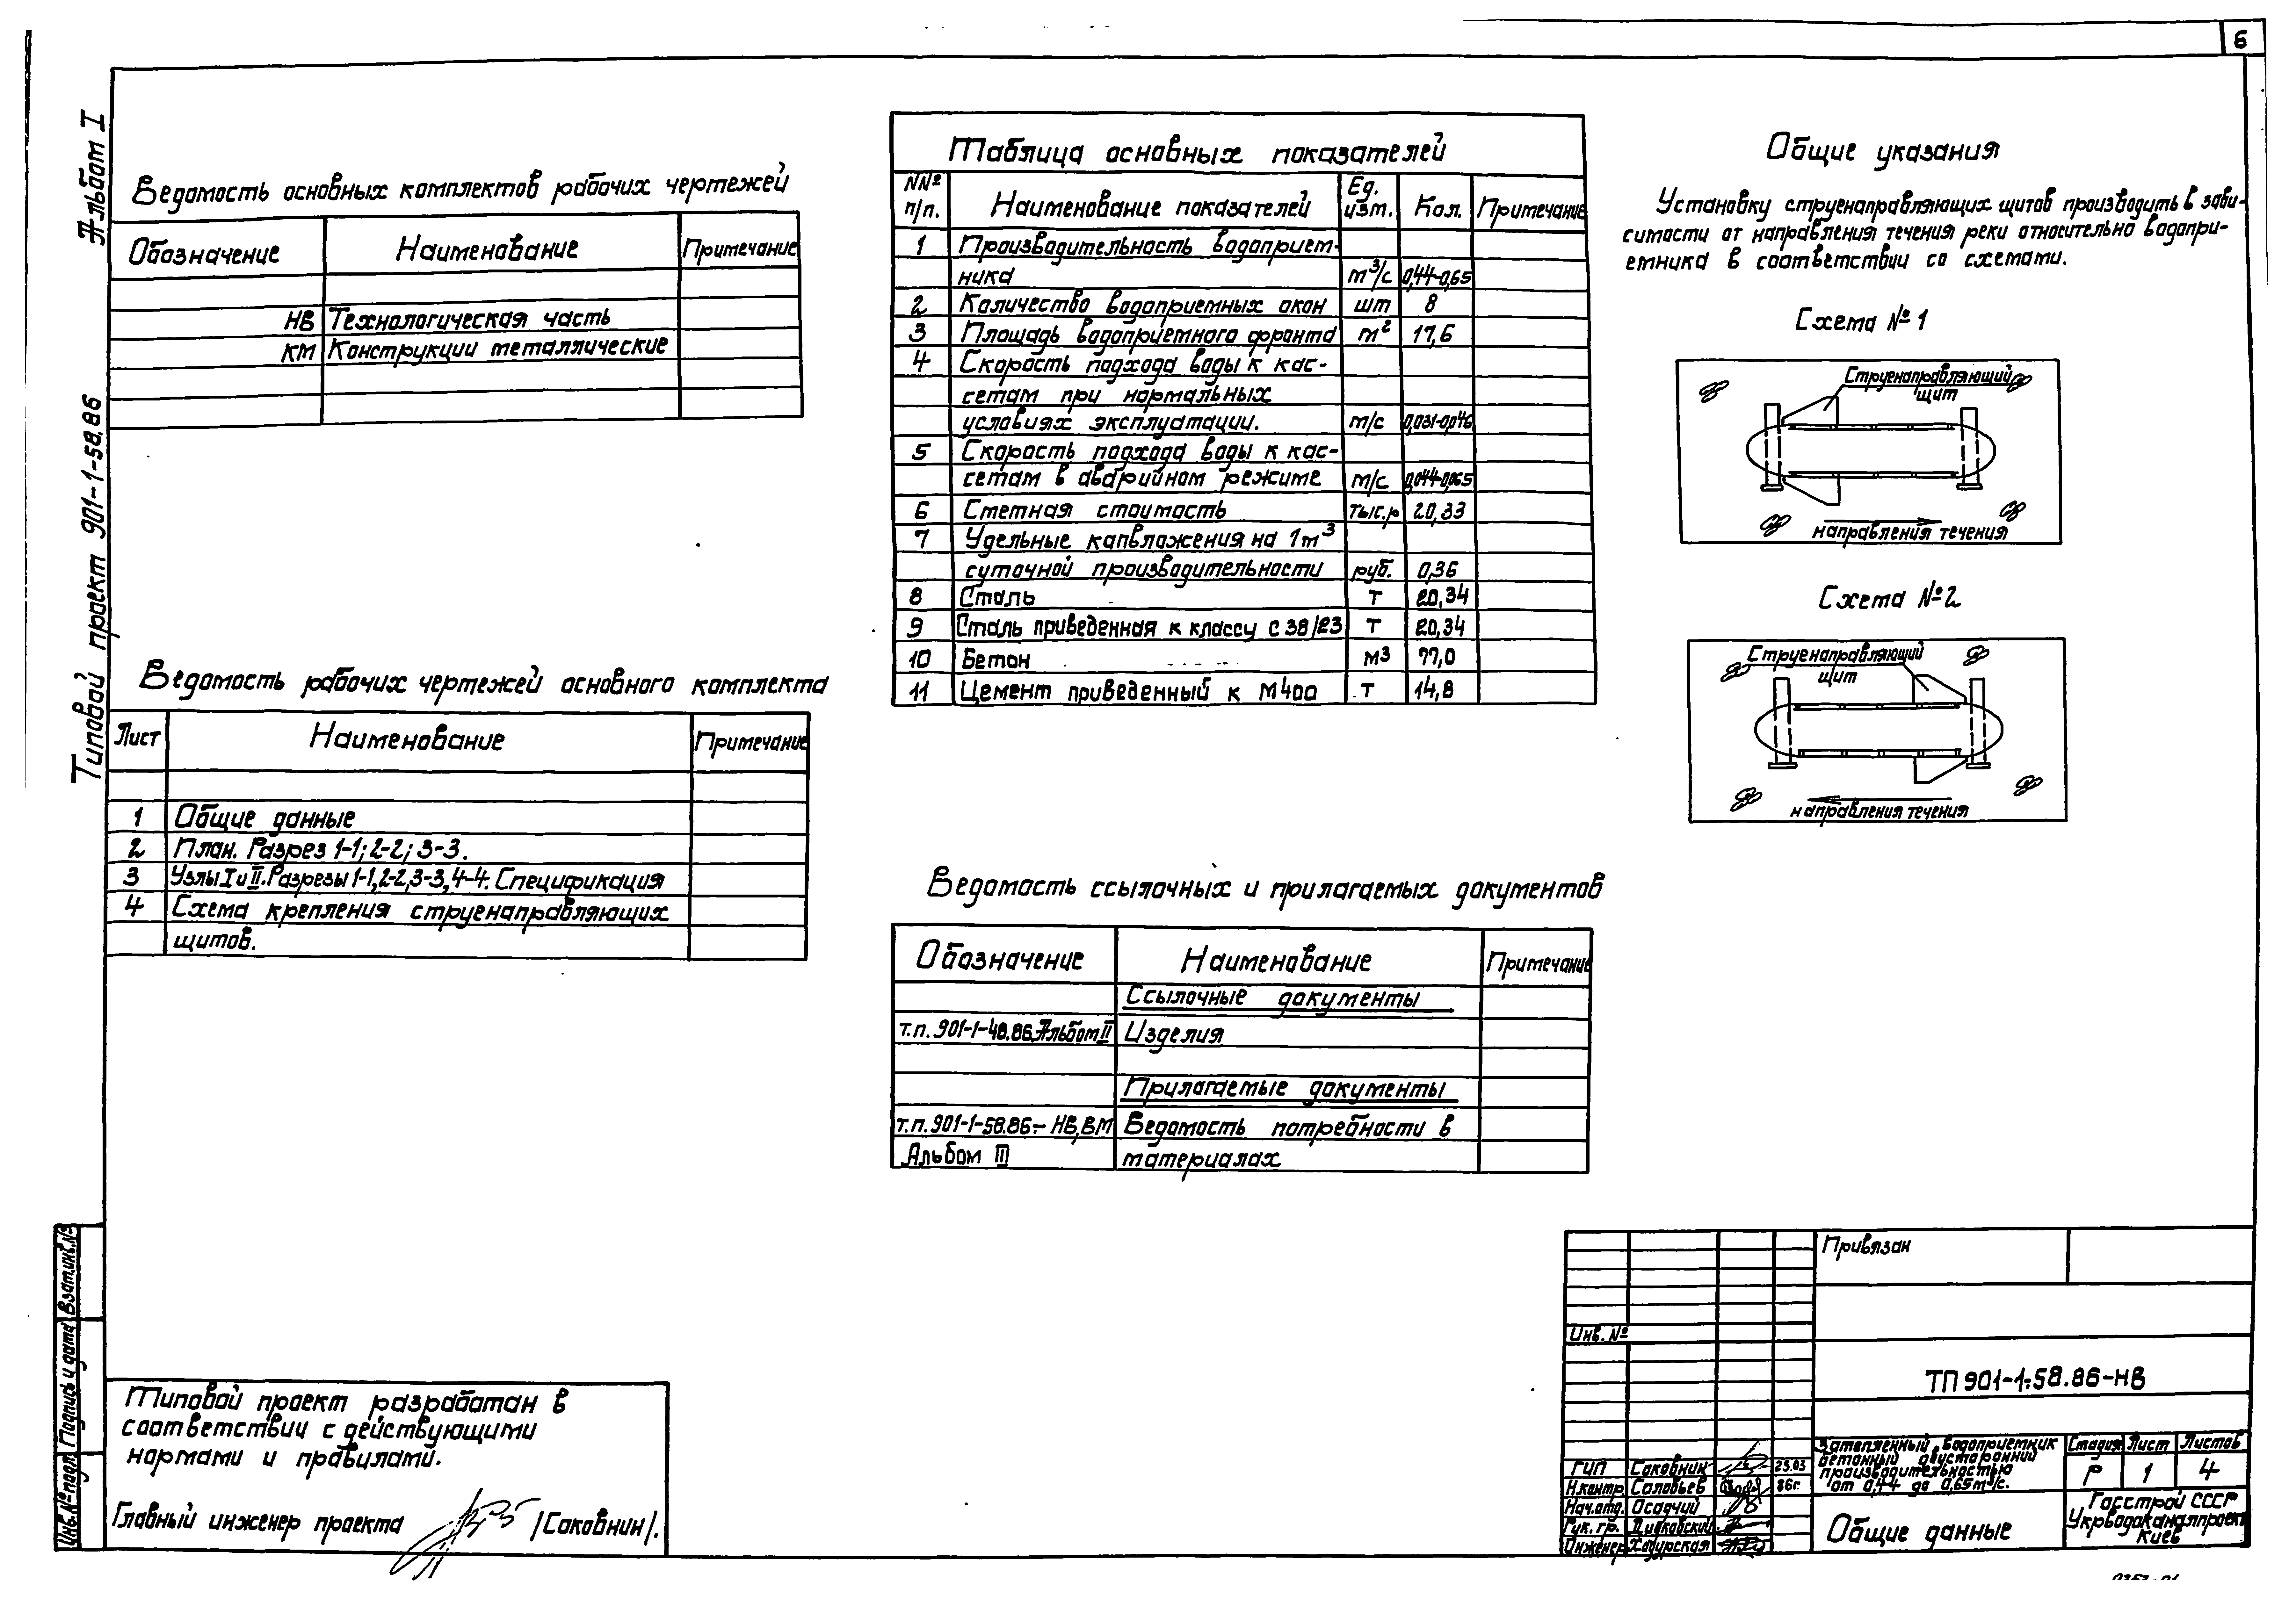 6
Альбом I
Типовой проект 901-1-58.86
Ведомость основных комплектов рабочих чертежей
Обозначение Наименование Примечание
НВ Технологическая часть
КМ Конструкции металлические
Ведомость рабочих чертежей основного комплекта
Лист Наименование Примечание
1 Общие данные
2 План. Разрез 1-1; 2-2; 3-3.
3 Узлы I и II. Разрезы 1-1, 2-2, 3-3, 4-4. Спецификация
4 Схема крепления струенаправляющих
щитов.
Таблица основных показателей
NNº п/п. Наименование показателей Ед. изм. Кол. Примечание
1 Производительность водоприем-
ника м³/с 0,44-0,65
2 Количество водоприемных окон шт 8
3 Площадь водоприемного фронта м² 17,6
4 Скорость подхода воды к кас-
сетам при нормальных
условиях эксплуатации. м/с 0,031-0,046
5 Скорость подхода воды к кас-
сетам в аварийном режиме м/с 0,044-0,065
6 Сметная стоимость тыс.р 20,33
7 Удельные капвложения на 1м³
суточной производительности руб. 0,36
8 Сталь т 20,34
9 Сталь приведенная к классу С 38/23 т 20,34
10 Бетон м3 77,0
11 Цемент приведенный к М400 т 14,8
Ведомость ссылочных и прилагаемых документов
Обозначение Наименование Примечание
Ссылочные документы
т.п. 901-1-48.86 Альбом II Изделия
Прилагаемые документы
т.п. 901-1-58.86.- НВ, ВМ Ведомость потребности в
Альбом III материалах
Общие указания
Установку струенаправляющих щитов производить в зави-
симости от направления течения реки относительно водопри-
емника в соответствии со схемами.
Схема №1
Струенаправляющий
щит
направления течения
Схема №2
Струенаправляющий
щит
направления течения
Взам.инв.№
Подпись и дата
Инв.№ подл.
Типовой проект разработан в
соответствии с действующими
нормами и правилами.
Главный инженер проекта /Соковнин/.
Привязан
Инв. №
ТП 901-1-58.86-НВ
ГИП Соковнин 25.03
Н.контр. Соловьев 86г.
Нач.отд. Осадчий
Рук. гр.
Инженер
Затопленный водоприемник
бетонный двусторонний
производительностью
от 0,44 до 0,65м³/с.
Стадия Лист Листов
Р 1 4
Общие данные
Госстрой СССР
Укрводоканалпроект
Киев